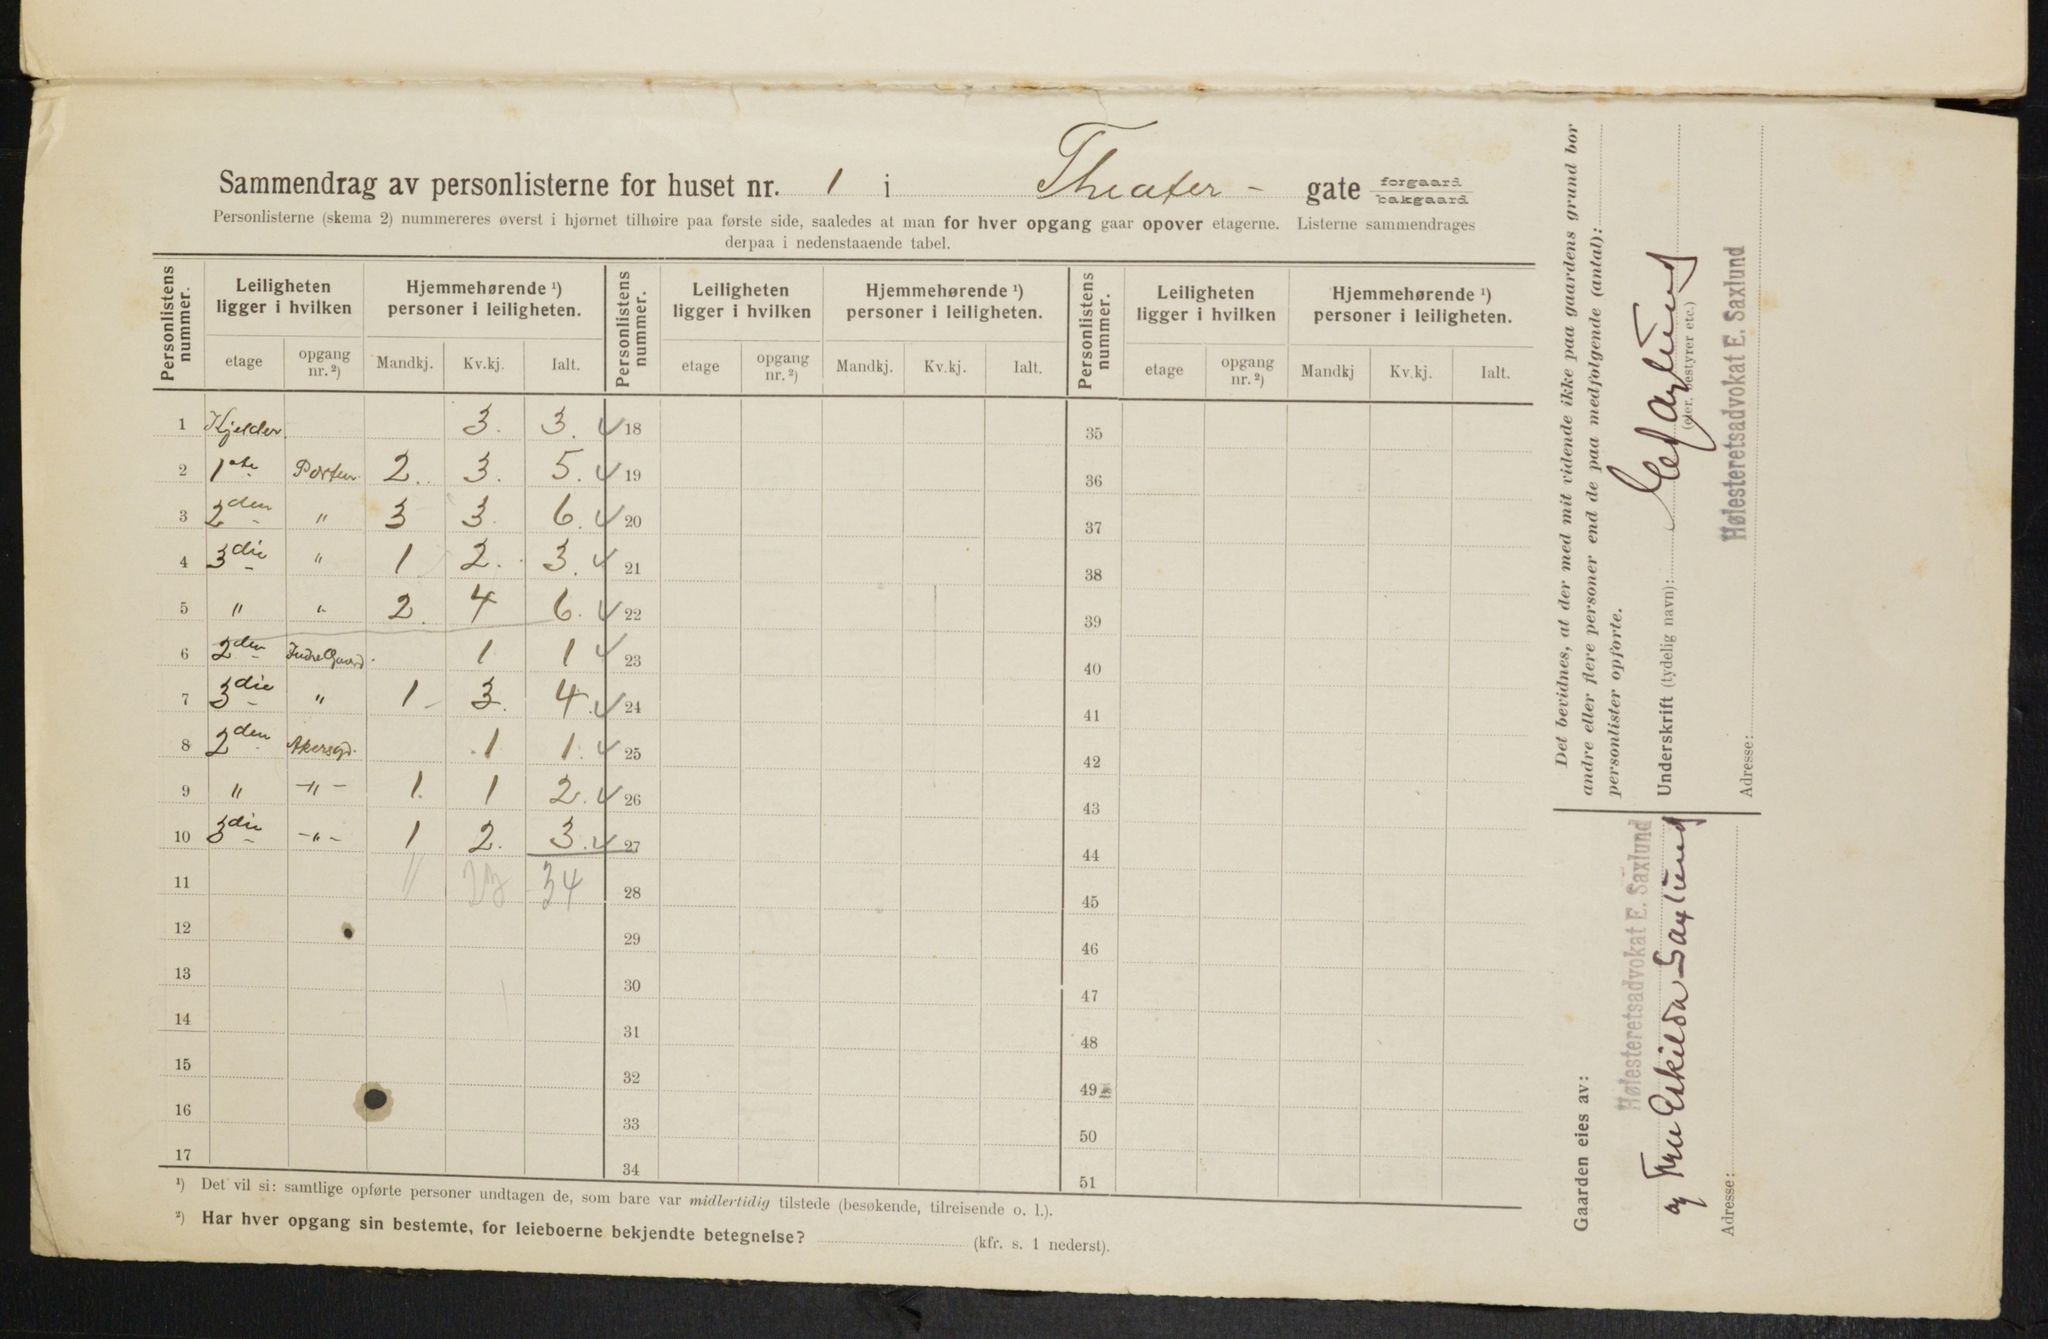 Sammendrag av personlisterne for huset nr. 1 i Theater- gate forgaard bakgaard
Personlisterne (skema 2) nummereres øverst i hjørnet tilhøire paa første side, saaledes at man for hver opgang gaar opover etagerne. Listerne sammendrages
derpaa i nedenstaaende tabel.
Personlistens nummer. Leiligheten ligger i hvilken Hjemmehørende ¹) personer i leiligheten. Personlistens nummer. Leiligheten ligger i hvilken Hjemmehørende ¹) personer i leiligheten. Personlistens nummer. Leiligheten ligger i hvilken Hjemmehørende ¹) personer i leiligheten.
etage opgang nr. ²) Mandkj. Kv.kj. Ialt. etage opgang nr. ²) Mandkj. Kv.kj. Ialt. etage opgang nr. ²) Mandkj Kv.kj. Ialt.
1 Kjelder. 3. 3. 18 35
2 1ste Porten. 2. 3. 5. 19 36
3 2den " 3 3. 6. 20 37
4 3die " 1 2. 3. 21 38
5 " " 2. 4 6. 22 39
6 2den Indre Gaard. 1 1 23 40
7 3die " 1 3. 4. 24 41
8 2den Akersgd. 1 1. 25 42
9 " -"- 1. 1 2. 26 43
10 3die -"- 1 2. 3. 27 44
11 11 23 34 28 45
12 29 46
13 30 47
14 31 48
15 32 49
16 33 50
17 34 51
¹) Det vil si: samtlige opførte personer undtagen de, som bare var midlertidig tilstede (besøkende, tilreisende o. l.).
²) Har hver opgang sin bestemte, for leieboerne bekjendte betegnelse? (kfr. s. 1 nederst).
Det bevidnes, at der med mit vidende ikke paa gaardens grund bor
andre eller flere personer end de paa medfølgende (antal):
personlister opførte.
Underskrift (tydelig navn):
(eier, bestyrer etc.)
Høiesteretsadvokat E. Saxlund
Adresse:
Gaarden eies av:
Høiesteretsadvokat E. Saxlund
og Fru Eskilda Saxlund
Adresse: